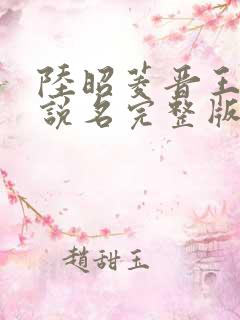 陸昭菱晋王
說名完整版
趙甜玉